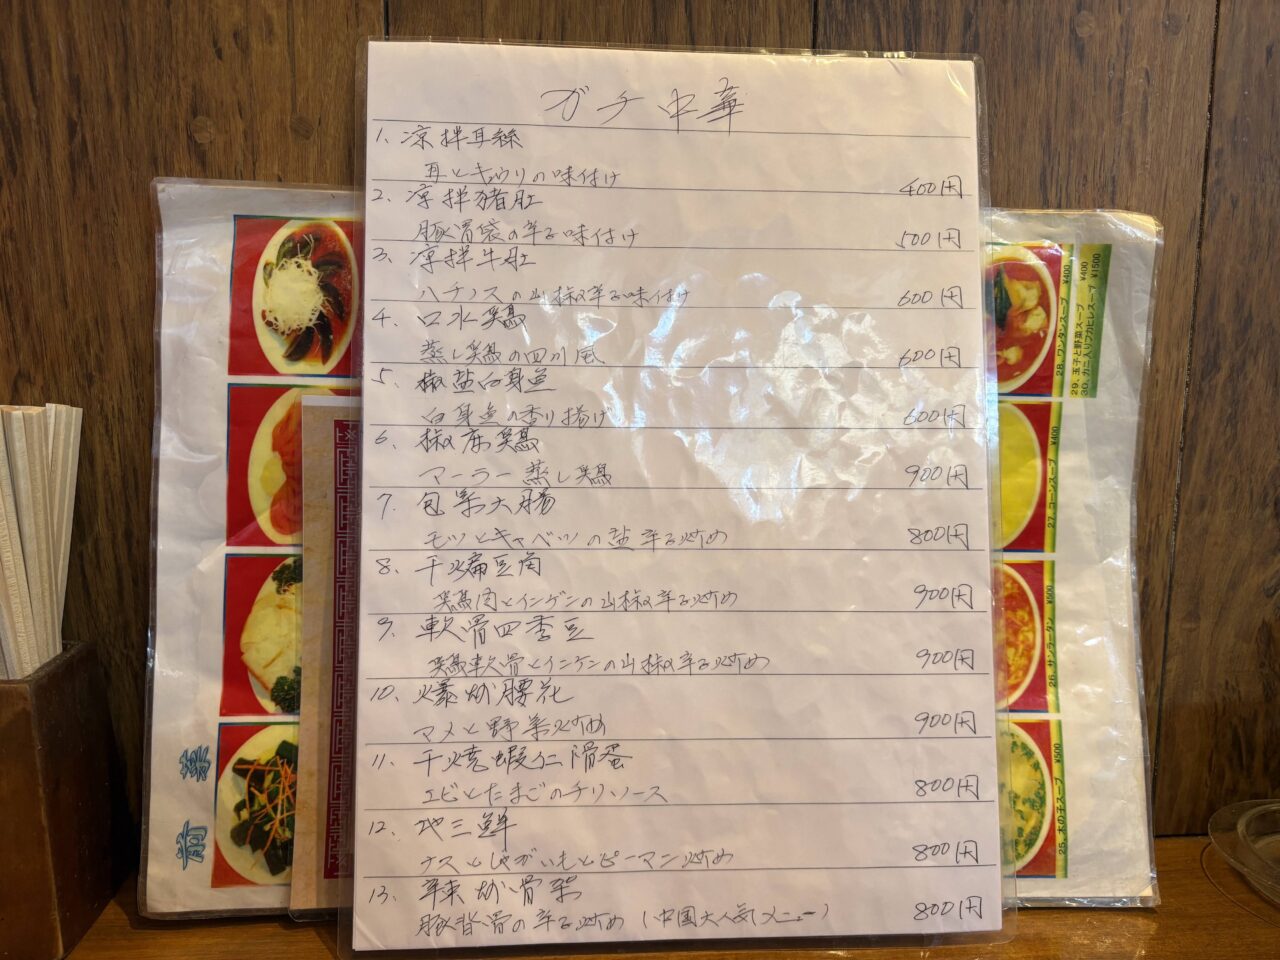 ガチ中華
1、凉拌耳絲
耳とキュウリの味付け 400円
2、凉拌猪肚
豚胃袋の辛る味付け 500円
3、凉拌牛肚
ハチノスの山椒辛る味付け 600円
4、口水鶏
蒸し鶏の四川風 600円
5、椒盐白身魚
白身魚の香り揚げ 600円
6、椒麻鶏
マーラー蒸し鶏 900円
7、包菜大腸
モツとキャベツの塩辛る炒め 800円
8、干煸豆角
鶏肉とインゲンの山椒辛る炒め 900円
9、軟骨四季豆
鶏軟骨とインゲンの山椒辛る炒め 900円
10、爆炒腰花
マメと野菜炒め 900円
11、干焼蝦仁滑蛋
エビとたまごのチリソース 800円
12、地三鮮
ナスとじゃがいもとピーマン炒め 800円
13、辣炒骨架
豚背骨の辛る炒め(中国大人気メニュー) 800円
前菜
28、ワンタンスープ ¥400
29、玉子と野菜スープ ¥400
30、カニ入りフカヒレスープ ¥1500
27、コーンスープ ¥400
26、サンラータン ¥500
25、木の子スープ ¥500